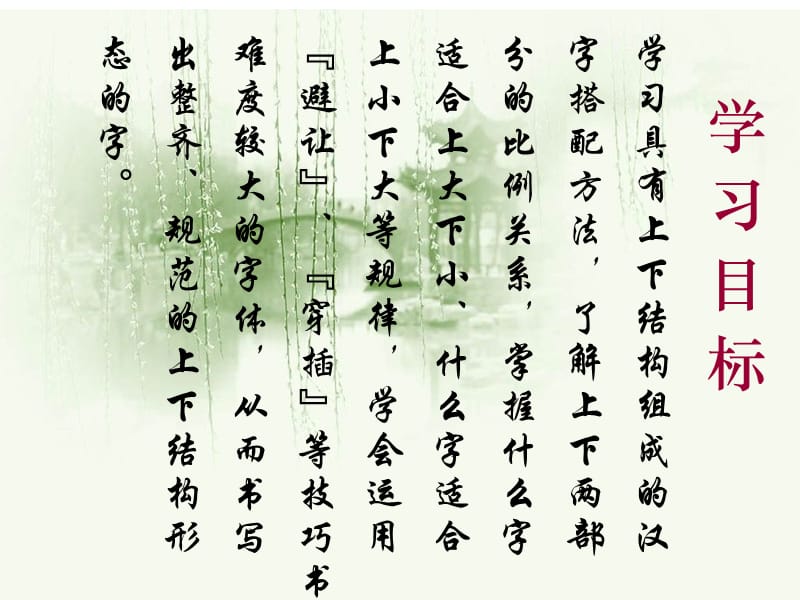 学习目标
学习具有上下结构组成的汉
字搭配方法，了解上下两部
分的比例关系，掌握什么字
适合上大下小、什么字适合
上小下大等规律，学会运用
『避让』、『穿插』等技巧书
难度较大的字体，从而书写
出整齐、规范的上下结构形
态的字。